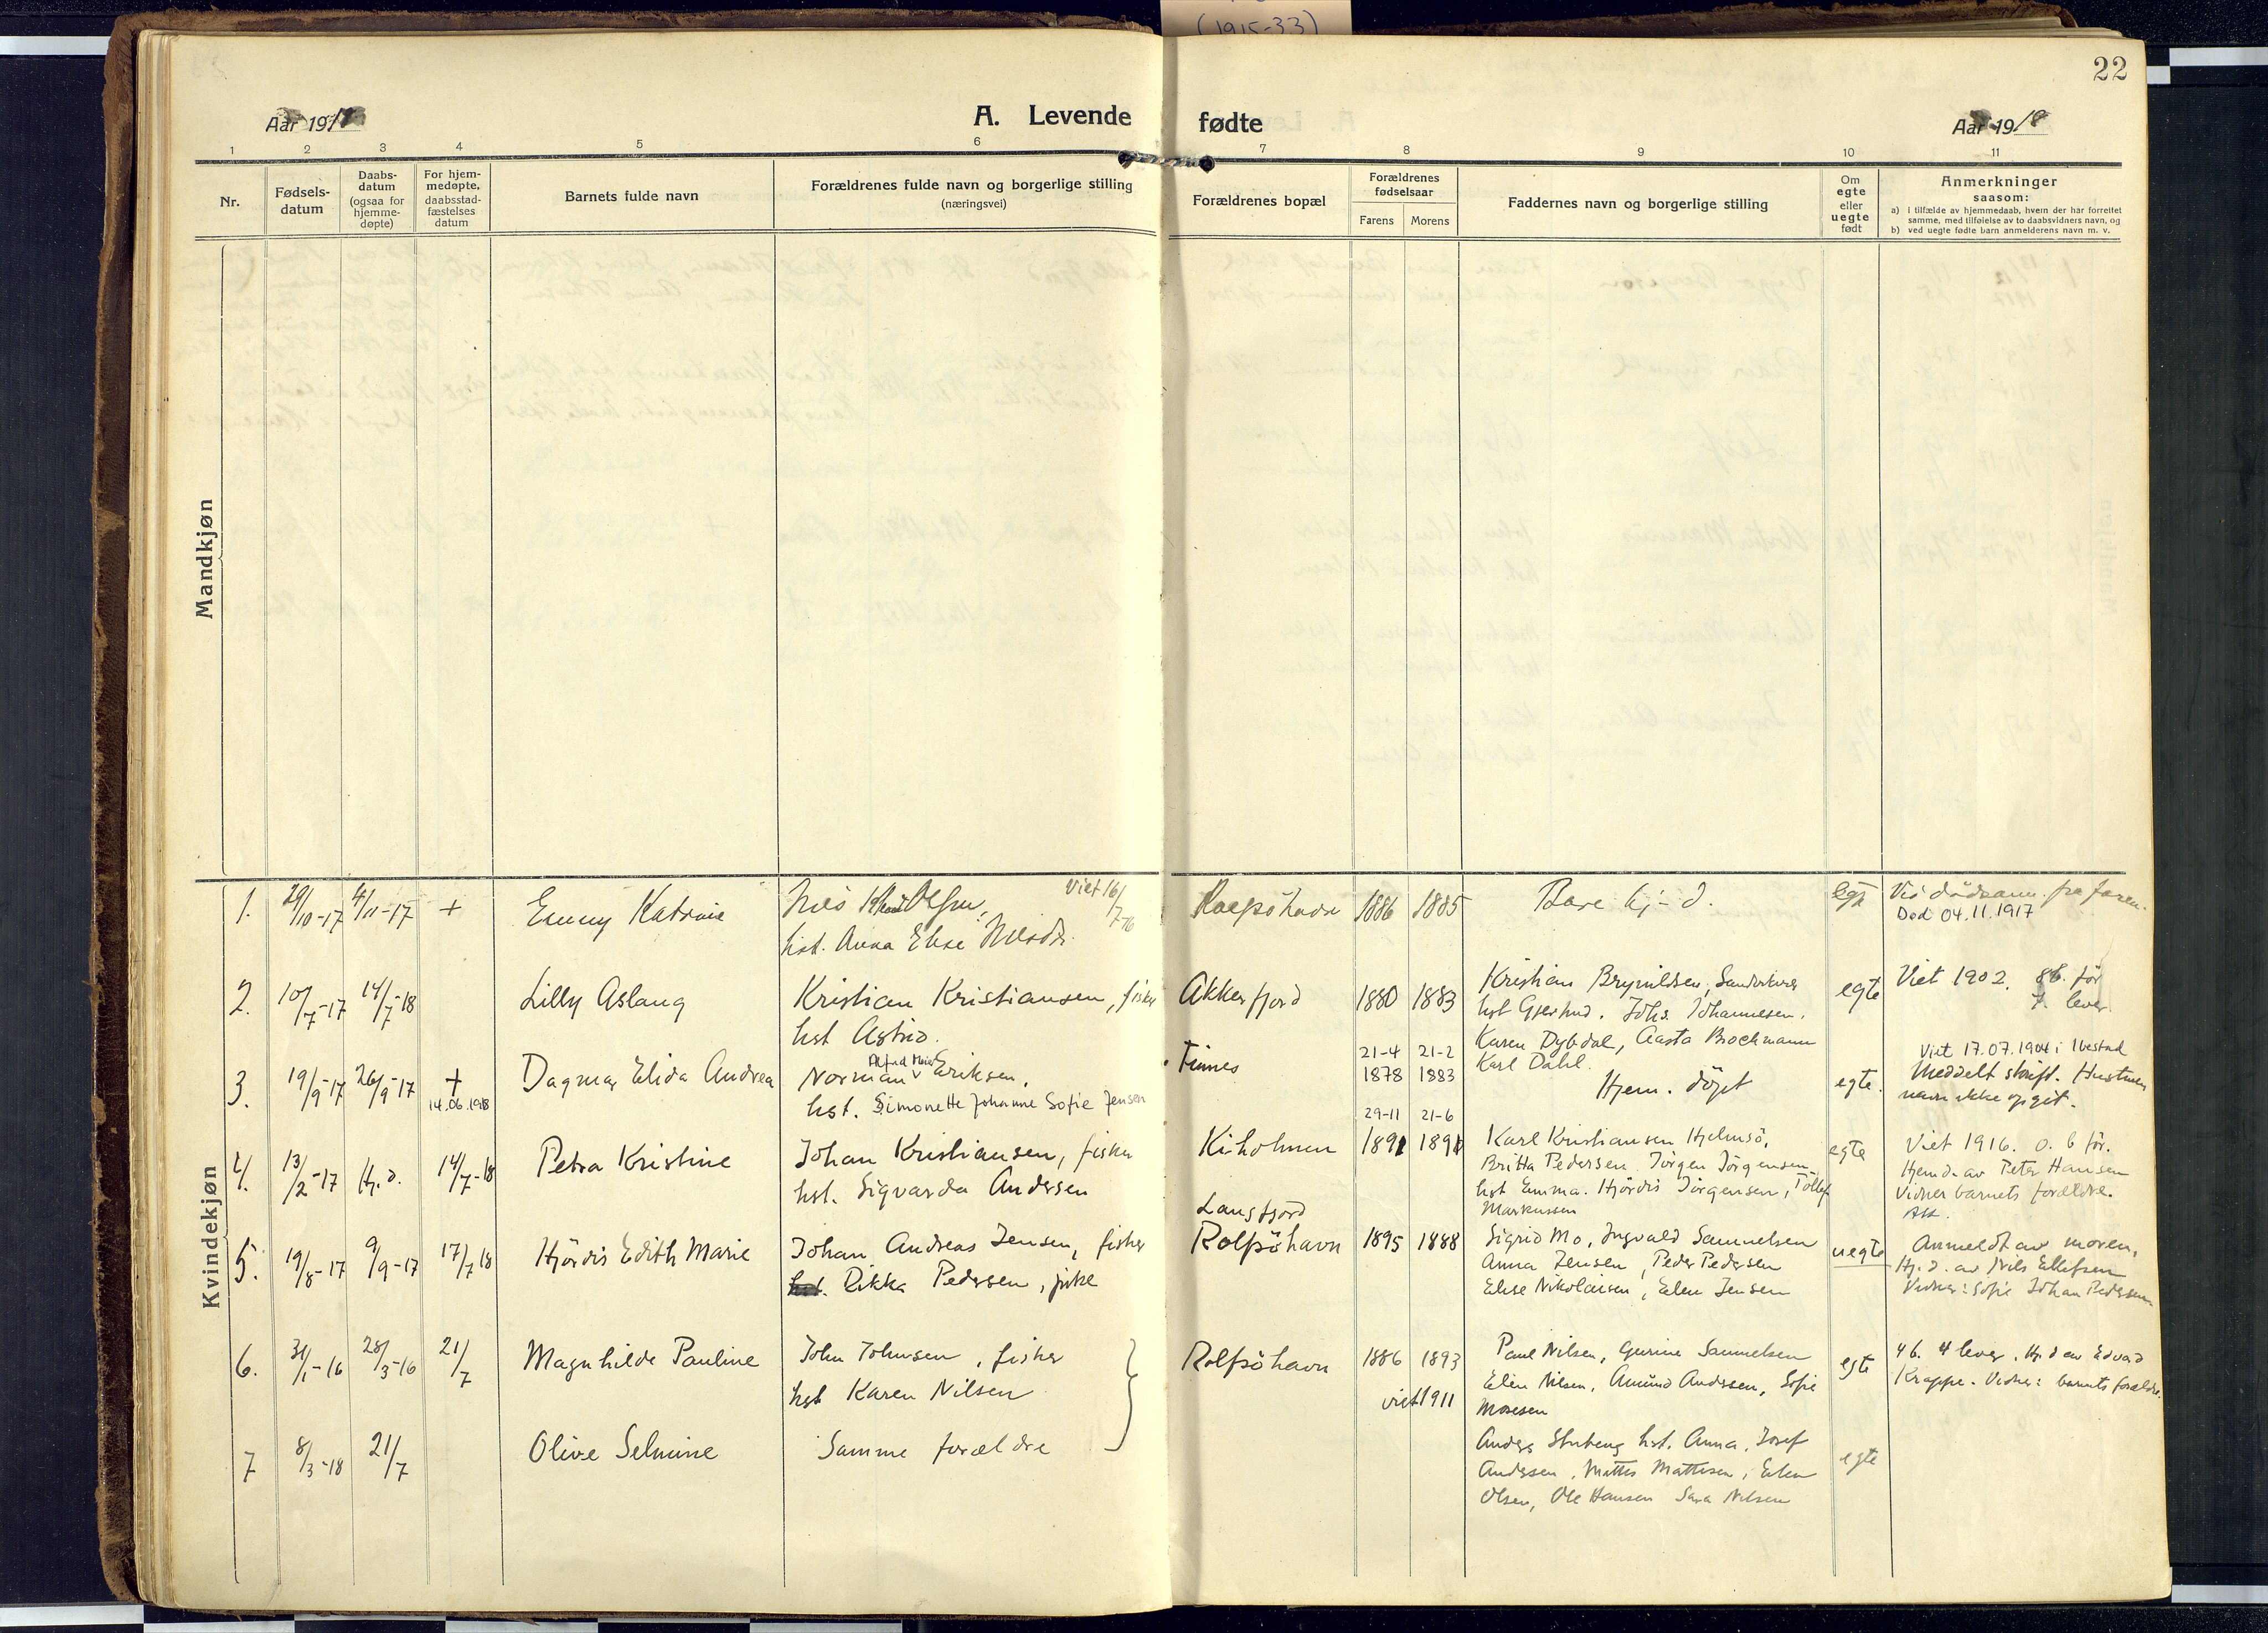 (1915-33)
22
Aar 1918
A. Levende fødte
Aar 1918
1 2 3 4 5 6 7 8 9 10 11
Nr.
Fødsels-
datum
Daabs-
datum
(ogsaa for
hjemme-
døpte)
For hjem-
medøpte,
daabsstad-
fæstelses
datum
Barnets fulde navn
Forældrenes fulde navn og borgerlige stilling
(næringsvei)
Forældrenes bopæl
Forældrenes
fødselsaar
Farens Morens
Faddernes navn og borgerlige stilling
Om
egte
eller
uegte
født
Anmerkninger
saasom:
a) i tilfælde av hjemmedaab, hvem der har forrettet
samme, med tilføielse av to daabsvidners navn, og
b) ved uegte fødte barn anmelderens navn m. v.
Mandkjøn
Kvindekjøn
1. 29/10-17 4/11-17 + Emmy Katrine
Nils Olsen, Viet 16/7-16
hst. Anna Elise Nilsdr.
Rolfsöhavn 1886 1885 Bare hj-d. egte
Vis dödsanm. fra faren.
Død 04.11.1917
2. 10/7-17 14/7-18 Lilly Aslaug
Kristian Kristiansen, fisker
hst Astrid.
Akkarfjord 1880 1883
Kristian Brynildsen, Sandvær
hst Gjertrud. Johs. Johannesen.
Karen Dybdal, Aasta Brochmann
Karl Dahl.
egte
Viet 1902. 8 b. før
7. lever.
3. 19/9-17 26/9-17 +
14.06.1918
Dagmar Elida Andrea
Norman Alfred Eriksen.
hst. Simonette Johanne Sofie Jensen
Finnes
21-4 21-2
1878 1883
Hjem. döpt
egte.
Viet 17.07.1904 i Ibestad
Meddelt skrift. Hustruens
navn ikke opgit.
4. 13/2-17 Hj. d. 14/7-18 Petra Kristine
Johan Kristiansen, fisker
hst. Sigvarda Andersen
Kirholmen
29-11 21-6
1891 1891
Karl Kristiansen Hjelmsö,
Britta Pedersen. Jörgen Jörgensen
hst Emma. Hjördis Jörgensen, Tollef
Markussen
egte
Viet 1916. 0. b før.
Hjemd. av Peter Hansen
Vidner barnets forældre.
Att.
5. 19/8-17 9/9-17 17/7 18 Hjördis Edith Marie
Johan Andreas Jensen, fisker
hst. Rikka Pedersen, pike
Langfjord
Rolfsöhavn 1895 1888
Sigrid Mo, Ingvald Samuelsen
Anna Jensen, Peder Pedersen
Elise Nikolaisen, Elen Jensen
uegte
Anmeldt av moren,
Hj. d. av Nils Ellefsen
Vidner: Sofie Johan Pedersen
6. 31/1-16 28/3-16 21/7 Magnhilde Pauline
John Johnsen, fisker
hst Karen Nilsen
Rolfsöhavn 1886 1893
viet 1911
Paul Nilsen, Gurine Samuelsen
Elen Nilsen, Amund Andersen, Sofie
Mosesen
egte
4 b. 4 lever. Hj. d av Edvard
Krappe. Vidner: barnets forældre.
7 8/3-18 21/7 Olive Selmine
Samme forældre
Anders Stubeng hst. Anna, Josef
Andersen, Mattis Mattisen, Elen
Olsen, Ole Hansen Sara Nilsen
egte